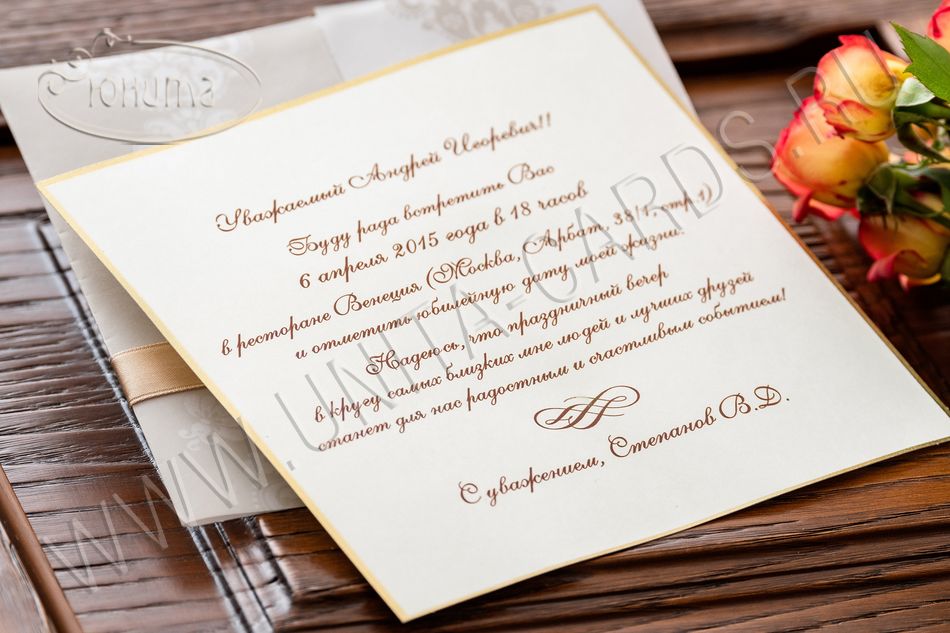 Юнита
Уважаемый Андрей Игоревич!!
Буду рада встретить Вас
6 апреля 2015 года в 18 часов
в ресторане Венеция (Москва, Арбат, 38/1, стр.1)
и отметить юбилейную дату моей жизни.
Надеюсь, что праздничный вечер
в кругу самых близких мне людей и лучших друзей
станет для нас радостным и счастливым событием!
С уважением, Степанов В.Д.
WWW.UNITA-CARDS.RU